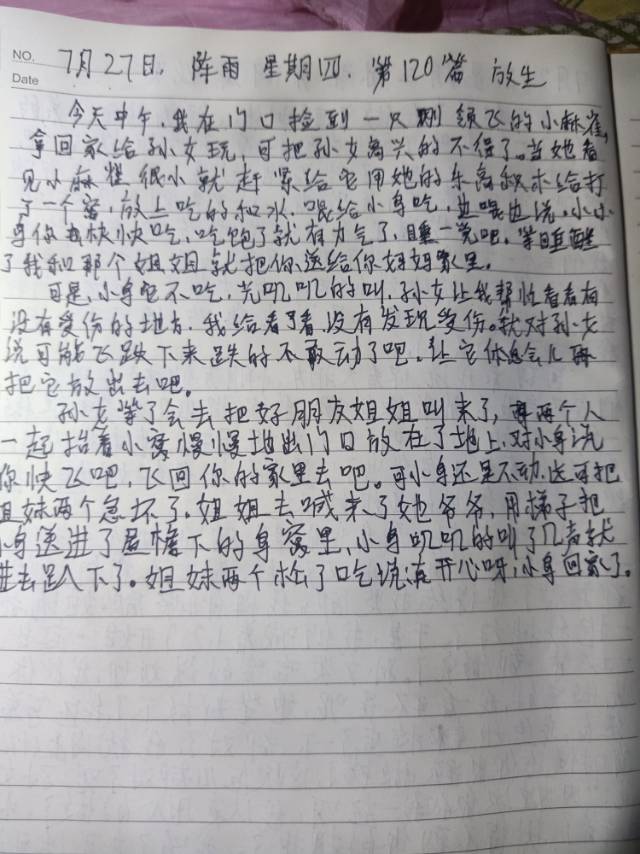 NO.
Date
7月27日, 阵雨 星期四. 第120篇 放生
今天中午,我在门口捡到一只刚领飞的小麻雀,
拿回家给孙女玩,可把孙女高兴的不得了。当她看
见小麻雀很小就赶紧给它用她的乐高积木给打
了一个窝,放上吃的和水.喂给小鸟吃,边喂边说.小小
鸟你快快吃,吃饱了就有力气了,睡一觉吧.等睡醒
了我和那个姐姐就把你送给你妈妈家里。
可是,小鸟它不吃,光叽叽的叫,孙女让我帮忙看看有
没有受伤的地方.我给看了看,没有发现受伤。就对孙女
说可能飞跌下来跌的不敢动了吧.让它休息会儿再
把它放出去吧。
孙女等了会去把好朋友姐姐叫来了,两个人
一起抬着小窝慢慢地出门口放在了地上.对小鸟说
你快飞吧,飞回你的家里去吧。可小鸟还是不动.这可把
姐妹两个急坏了.姐姐去喊来了她爷爷,用梯子把
小鸟送进了屋檐下的鸟窝里,小鸟叽叽的叫了几声就
进去趴下了.姐妹两个松了口气说:真开心呀,小鸟回家了。